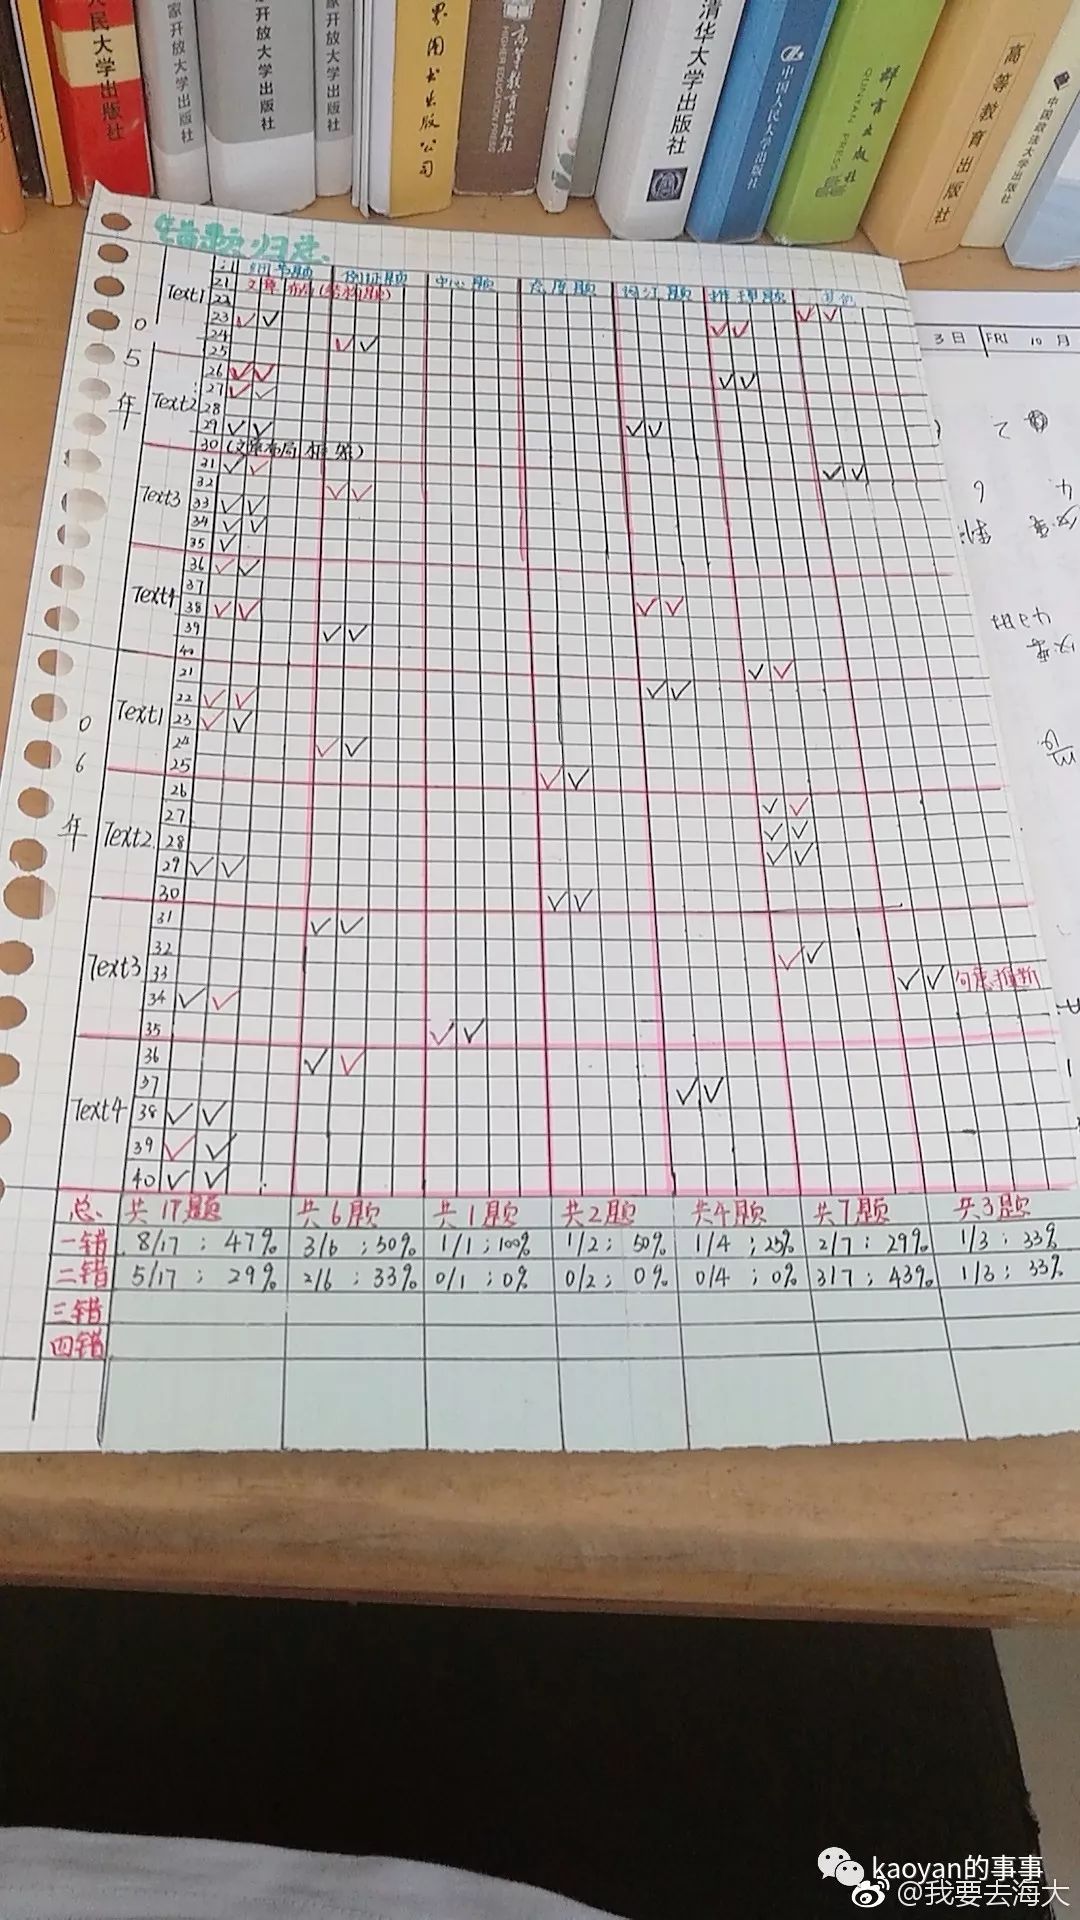 人民大学出版社
家开放大学出版社
家开放大学出版社
家开放大学出版社
界图书出版公司
高等教育出版社
HIGHER EDUCATION PRESS
清华大学出版社
中国人民大学出版社
群言出版社
QUNYAN PRESS
高等教育出版社
中国政法大学出版社
错题归总
细节题 例证题 中心题 态度题 词汇题 推理题 其他
3日 FRI 10月
05年
Text1
21 文章布局(结构题)
22
23 ✓✓
24 ✓✓
25
Text2
26 ✓✓
27 ✓✓
28
29 ✓✓ ✓✓
30 (文章布局 框架)
Text3
31 ✓✓
32 ✓✓
33 ✓✓
34 ✓✓
35 ✓
Text4
36 ✓✓
37
38 ✓✓ ✓✓
39 ✓✓
40
06年
Text1
21 ✓✓
22 ✓✓ ✓✓
23 ✓✓
24 ✓✓
25 ✓✓
Text2
26 ✓✓
27 ✓✓
28 ✓✓
29 ✓✓
30 ✓✓
Text3
31 ✓✓
32 ✓✓
33 ✓✓ 句意推断
34 ✓✓
35 ✓✓
Text4
36 ✓✓
37 ✓✓
38 ✓✓
39 ✓✓
40 ✓✓
总、 共17题 共6题 共1题 共2题 共4题 共7题 共3题
一错 8/17;47% 3/6;50% 1/1;100% 1/2;50% 1/4;25% 2/7;29% 1/3;33%
二错 5/17;29% 2/6;33% 0/1;0% 0/2;0% 0/4;0% 3/7;43% 1/3;33%
三错
四错
kaoyan的事事
@我要去海大